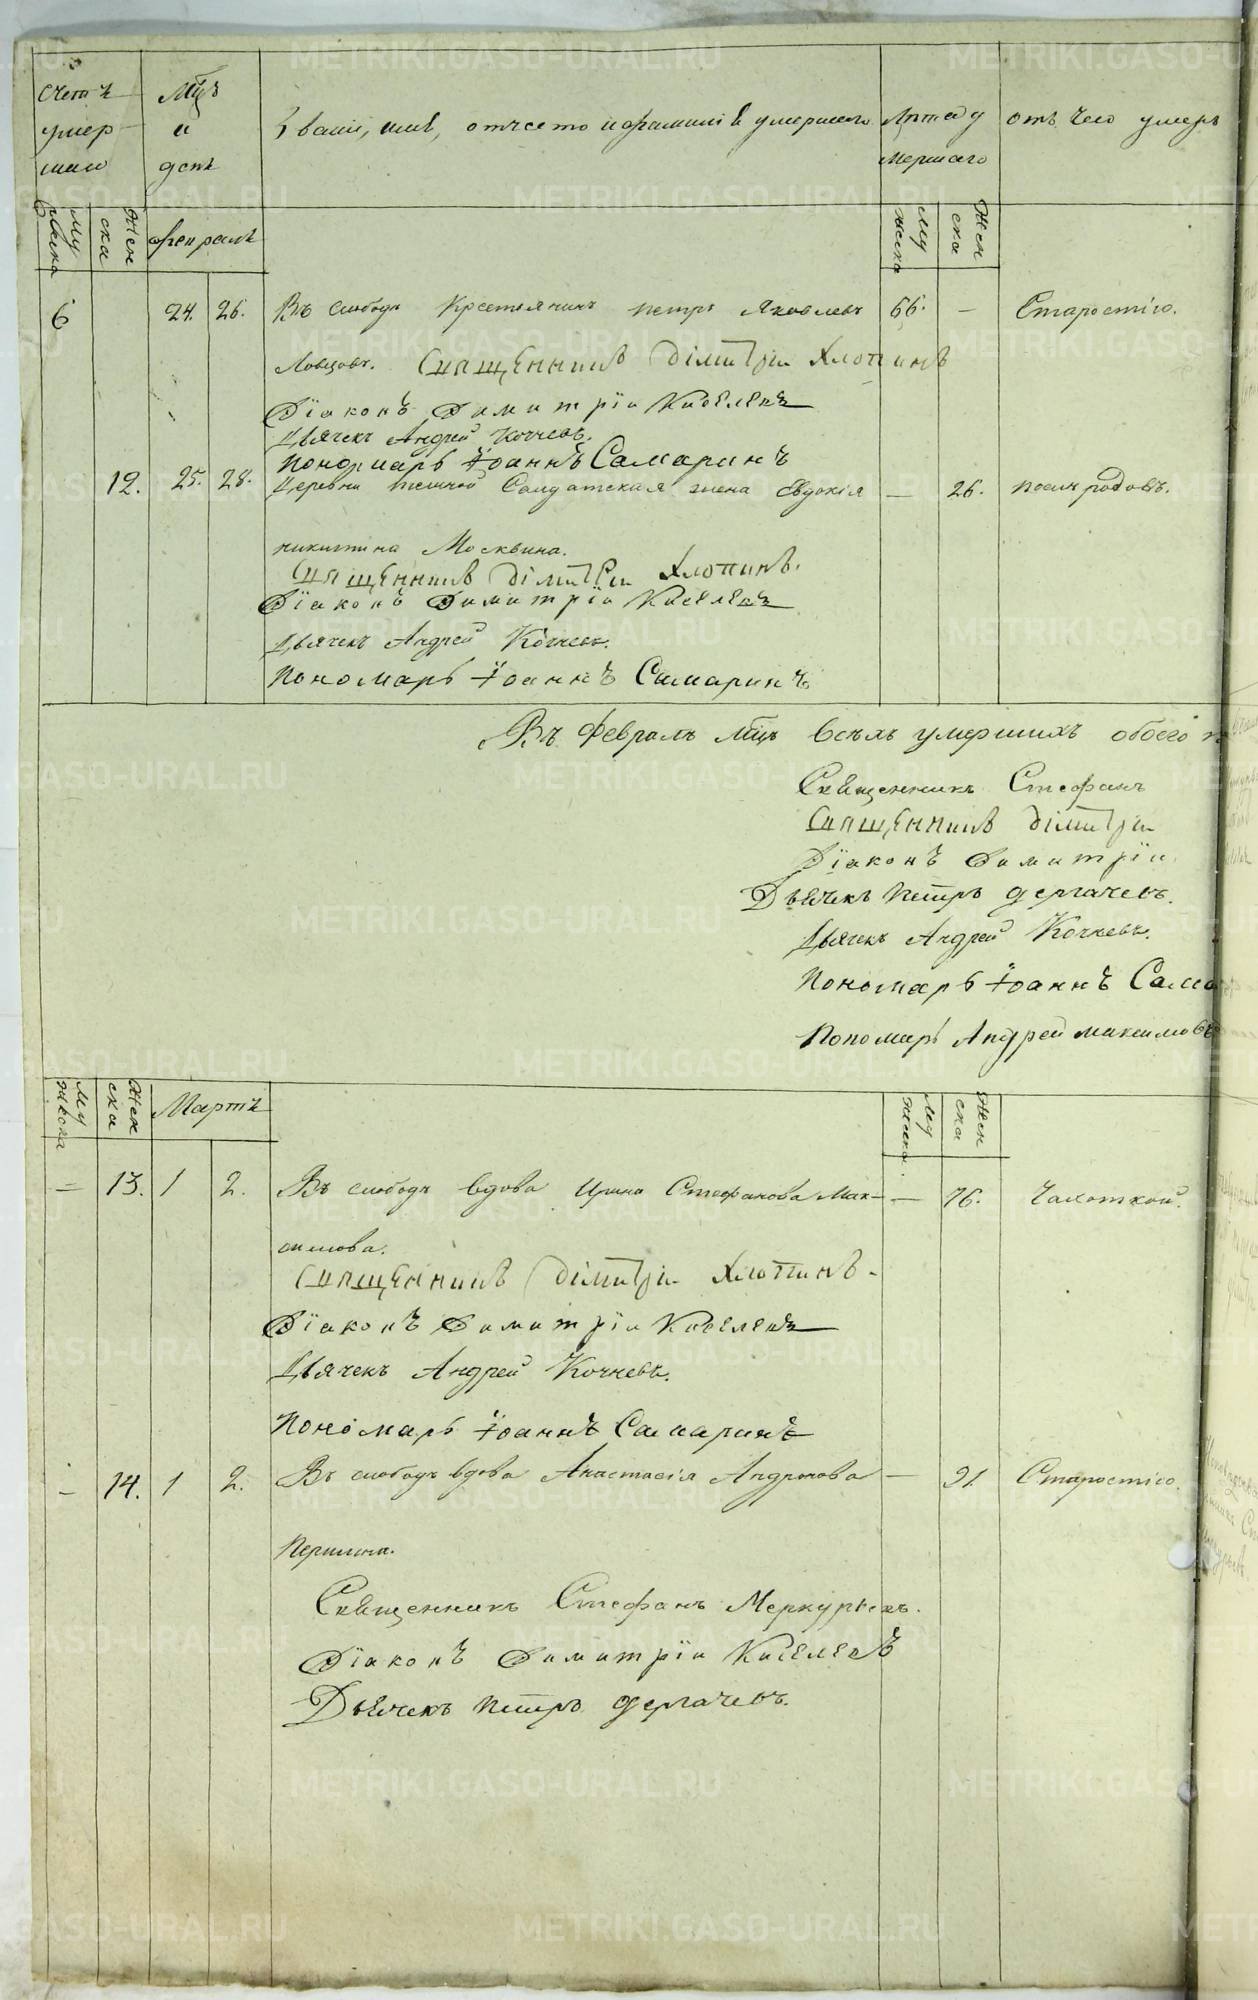 Счетъ умер шихъ
Мцъ и день
Званіе, имя, отчество и фамилія умершаго
Лѣта у мершаго
отъ чего умеръ
му жеска
жен ска
февраль
му жеска
жен ска
6 24. 26. Въ слободѣ Крестьянинъ петръ Яковлевъ 66. — Старостію.
Ловцовъ. Священникъ Дімитрій Хлопинъ
Діаконъ Димитрій Киселевъ
Дьячекъ Андрей Кочневъ.
Пономарь Іоаннъ Самаринъ
12. 25. 28. Деревни Солдатская жена Евдокія — 26. послѣ родовъ.
никитина Москвина.
Священникъ Дімитрій Хлопинъ.
Діаконъ Димитрій Киселевъ
Дьячекъ Андрей Кочневъ.
Пономарь Іоаннъ Самаринъ
Въ Февралѣ Мцѣ всѣхъ умершихъ обоего
Священникъ Стефанъ
Священникъ Дімитрій
Діаконъ Димитрій
Дьячекъ Петръ Дергачевъ.
Дьячекъ Андрей Кочневъ.
Пономарь Іоаннъ Сама
Пономарь Андрей Максимовъ
му жеска
жен ска
Мартъ
му жеска
жен ска
— 13. 1 2. Въ слободѣ вдова Ирина Стефанова Мак- — 76. Чахоткой.
симова.
Священникъ Дімитрій Хлопинъ.
Діаконъ Димитрій Киселевъ
Дьячекъ Андрей Кочневъ.
Пономарь Іоаннъ Самаринъ
— 14. 1 2. Въ слободѣ вдова Анастасія Андронова — 91. Старостію.
Першина.
Священникъ Стефанъ Меркурьевъ.
Діаконъ Димитрій Киселевъ
Дьячекъ Петръ Дергачевъ.